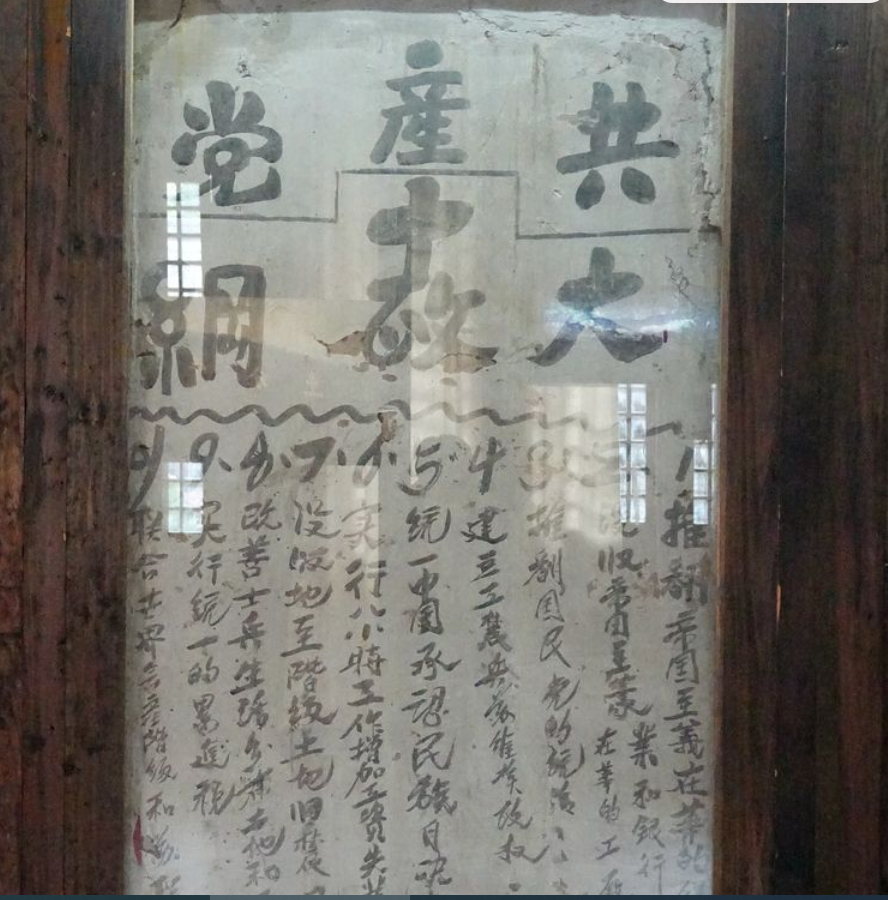 共產党
十大政綱
1 推翻帝国主義在華的
收帝国主義在華的工厰
業和銀行
3 推翻国民党的統治
4 建立工農兵蘇維埃政权
5 統一中国承認民族自决
6. 实行八小時工作增加工資失業
7. 没收地主階級土地
8. 改善士兵生活分土地和
9. 实行統一的累進税
联合世界無産階級和苏联